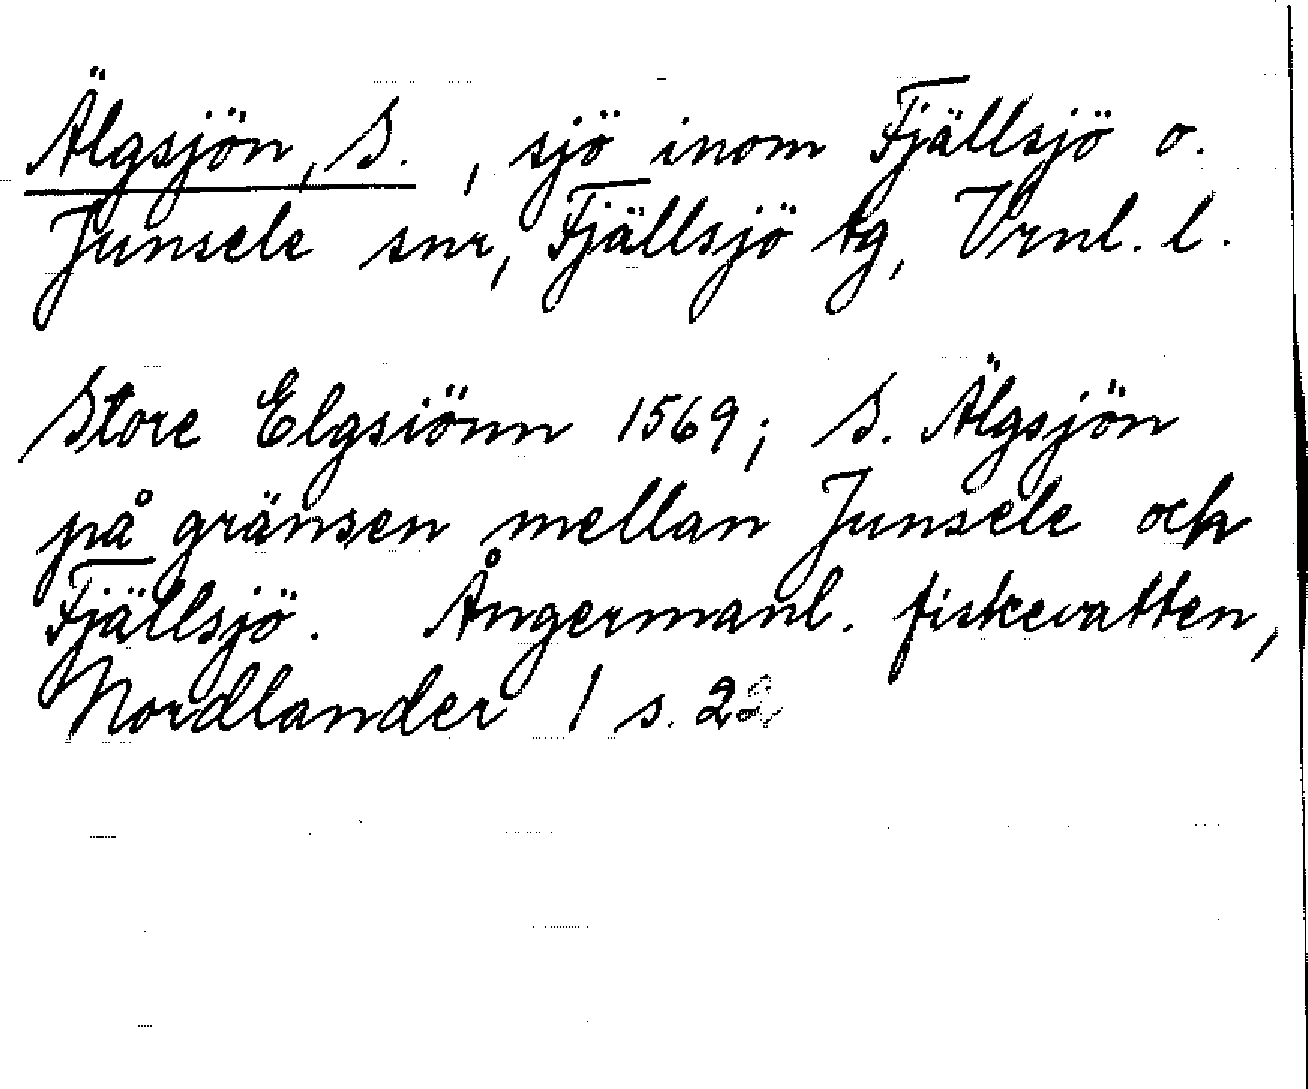 Älgsjön, S., sjö inom Fjällsjö o.
Junsele snr, Fjällsjö tg, Vrnl. l.
Store Elgsiönn 1569; S. Älgsjön
på gränsen mellan Junsele och
Fjällsjö. Ångermanl. fiskevatten,
Nordlander 1 s. 22